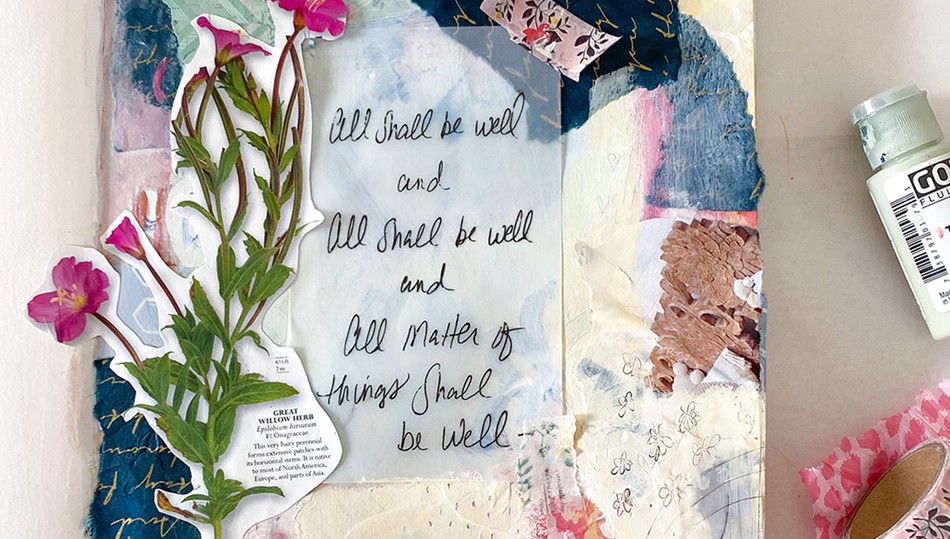 All Shall be well
and
All Shall be well
and
All Matter of
things Shall
be well -
6½ft
2m
GREAT
WILLOW HERB
Epilobium hirsutum
F: Onagraceae
This very hairy perennial
forms extensive patches with
its horizontal stems. It is native
to most of North America,
Europe, and parts of Asia.
GO
FLUI